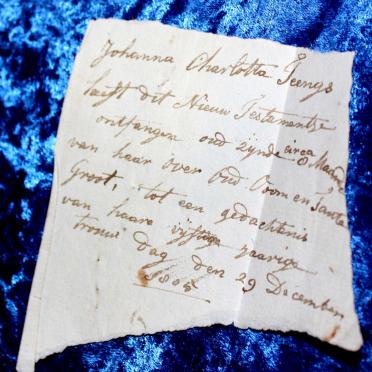 Johanna Charlotta Jeengs
heeft dit Nieuw Testamentje
ontfangen oud zijnde circa 8 Maande
van haar over Oud Oom en Tante
Groot, tot een gedachtenis
van haare vijftig jaarige
trouw dag den 29 December
1805